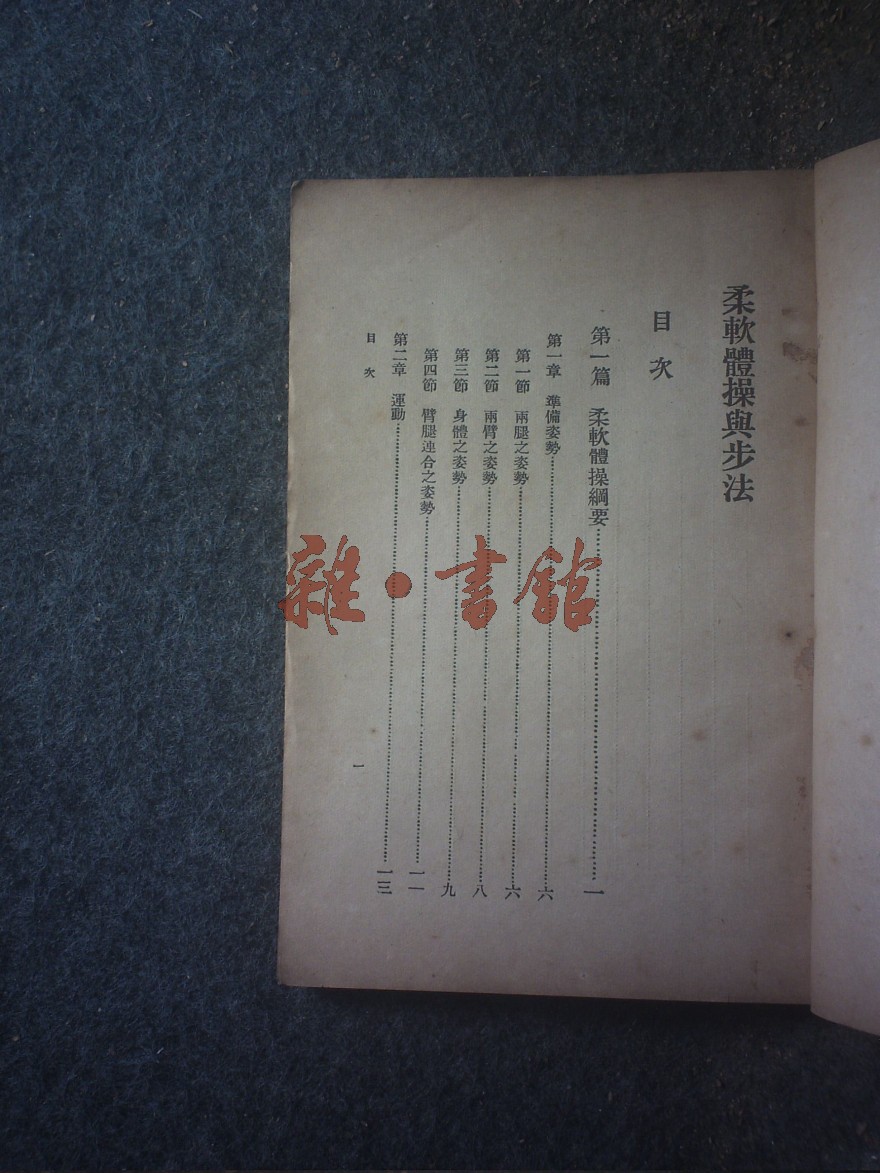 柔軟體操與步法
目次
第一篇 柔軟體操綱要……一
第一章 準備姿勢……六
第一節 兩腿之姿勢……六
第二節 兩臂之姿勢……八
第三節 身體之姿勢……九
第四節 臂腿連合之姿勢……一一
第二章 運動……一三
目次
一
雜·書館